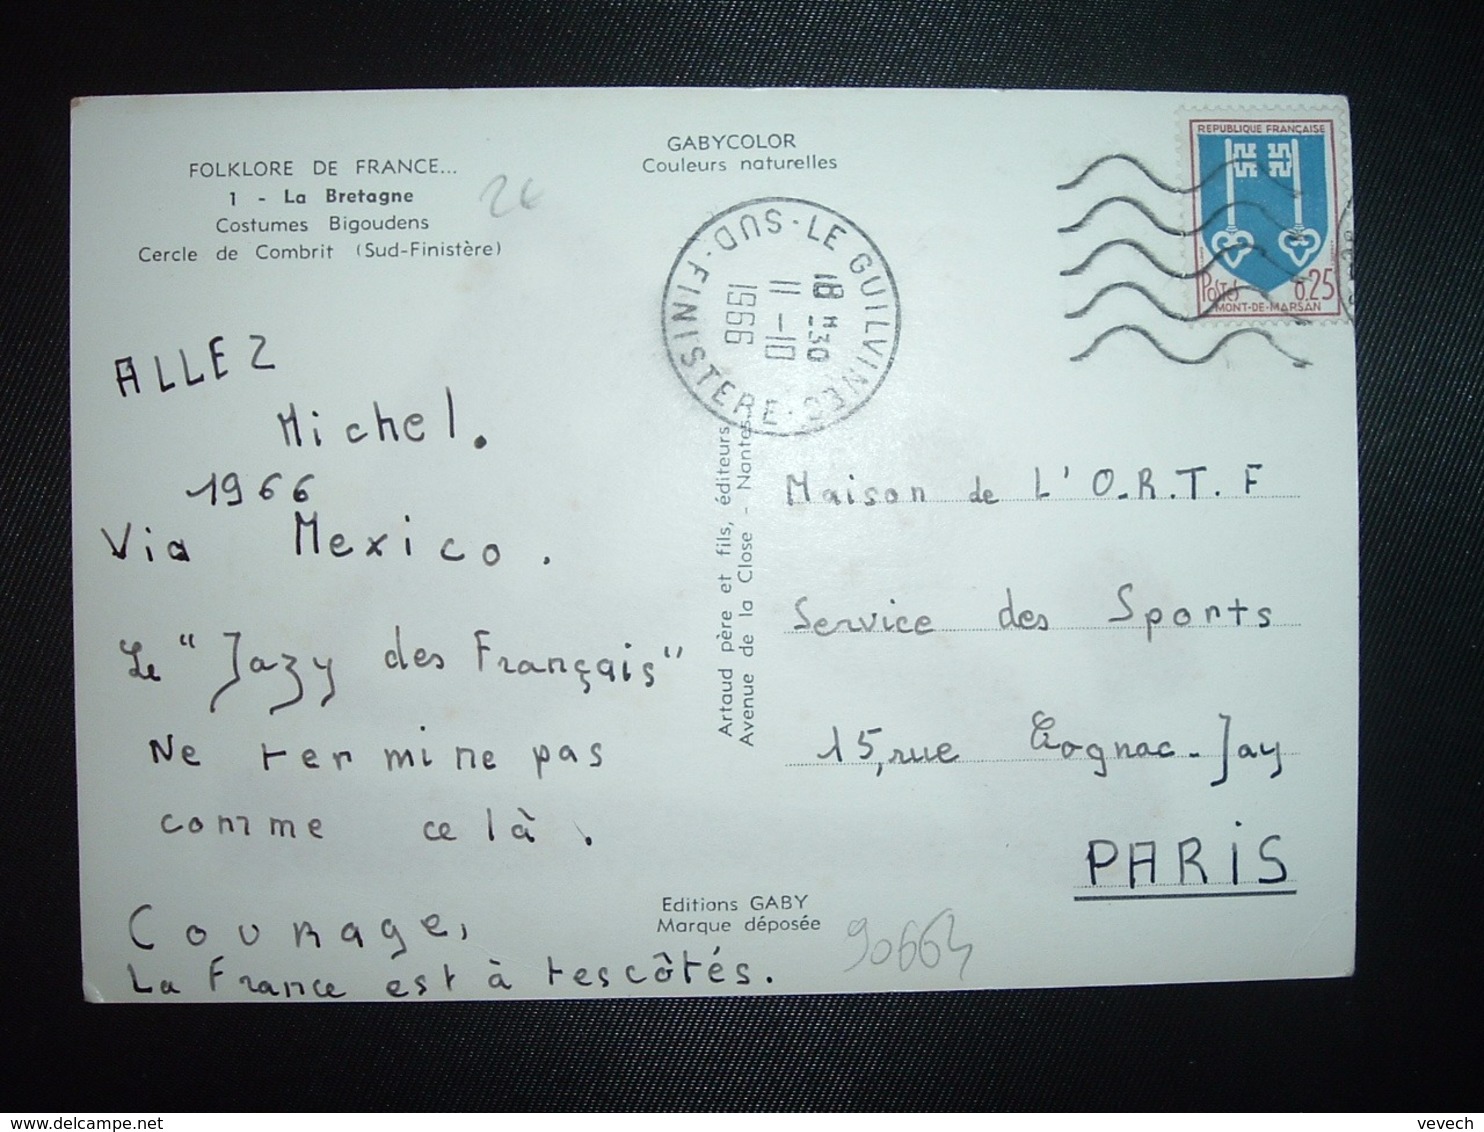 FOLKLORE DE FRANCE...
1 - La Bretagne
Costumes Bigoudens
Cercle de Combrit (Sud-Finistère)
2€
GABYCOLOR
Couleurs naturelles
LE GUILVINEC · FINISTERE-SUD ·
18 H 30
11-10
1966
REPUBLIQUE FRANÇAISE
Postes 0,25
MONT-DE-MARSAN
ALLEZ
Michel.
1966
Via Mexico.
Le "Jazy des Français"
Ne termine pas
comme celà.
Courage,
La France est à tes côtés.
Artaud père et fils, éditeurs
Avenue de la Close - Nantes
Maison de L'O.R.T.F
Service des Sports
15, rue Cognac-Jay
PARIS
Editions GABY
Marque déposée
90664
vevech